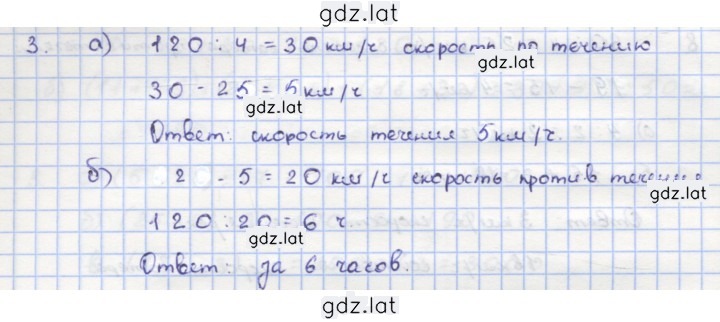 gdz.lat
3. а) 120 : 4 = 30 км/ч скорость по течению
gdz.lat
30 - 25 = 5 км/ч
gdz.lat
Ответ: скорость течения 5 км/ч.
б) 2 - 5 = 20 км/ч скорость против течения
gdz.lat
120 : 20 = 6 ч
gdz.lat
Ответ: за 6 часов.
gdz.lat